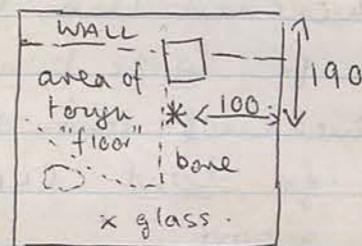 WALL
area of
tough
"floor"
* 100
190
bone
x glass.